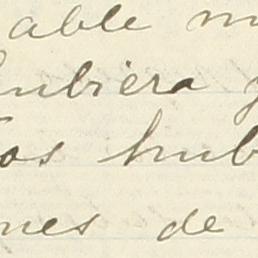 able m
hubiera y
os hub
nes de